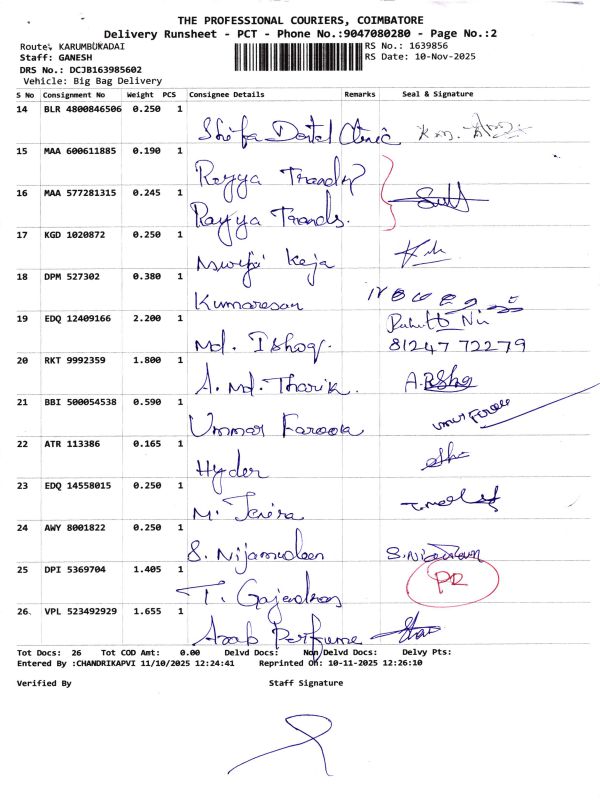 THE PROFESSIONAL COURIERS, COIMBATORE
Delivery Runsheet - PCT - Phone No.:9047080280 - Page No.:2
Route: KARUMBUKADAI RS No.: 1639856
Staff: GANESH RS Date: 10-Nov-2025
DRS No.: DCJB163985602
Vehicle: Big Bag Delivery
S No Consignment No Weight PCS Consignee Details Remarks Seal & Signature
14 BLR 4800846506 0.250 1
Dental Clinic
15 MAA 600611885 0.190 1
Rayya
16 MAA 577281315 0.245 1
Rayya Trands.
17 KGD 1020872 0.250 1
Keja
18 DPM 527302 0.380 1
Kumaresan
19 EDQ 12409166 2.200 1
Md. Ishaq. 81247 72279
20 RKT 9992359 1.800 1
A. Md. Tharik.
21 BBI 500054538 0.590 1
Ummar Farook
22 ATR 113386 0.165 1
Hyder
23 EDQ 14558015 0.250 1
M.
24 AWY 8001822 0.250 1
S. Nijamudeen
25 DPI 5369704 1.405 1
T. Gajendran
26. VPL 523492929 1.655 1
Arab Perfume
Tot Docs: 26 Tot COD Amt: 0.00 Delvd Docs: Non Delvd Docs: Delvy Pts:
Entered By :CHANDRIKAPVI 11/10/2025 12:24:41 Reprinted On: 10-11-2025 12:26:10
Verified By Staff Signature